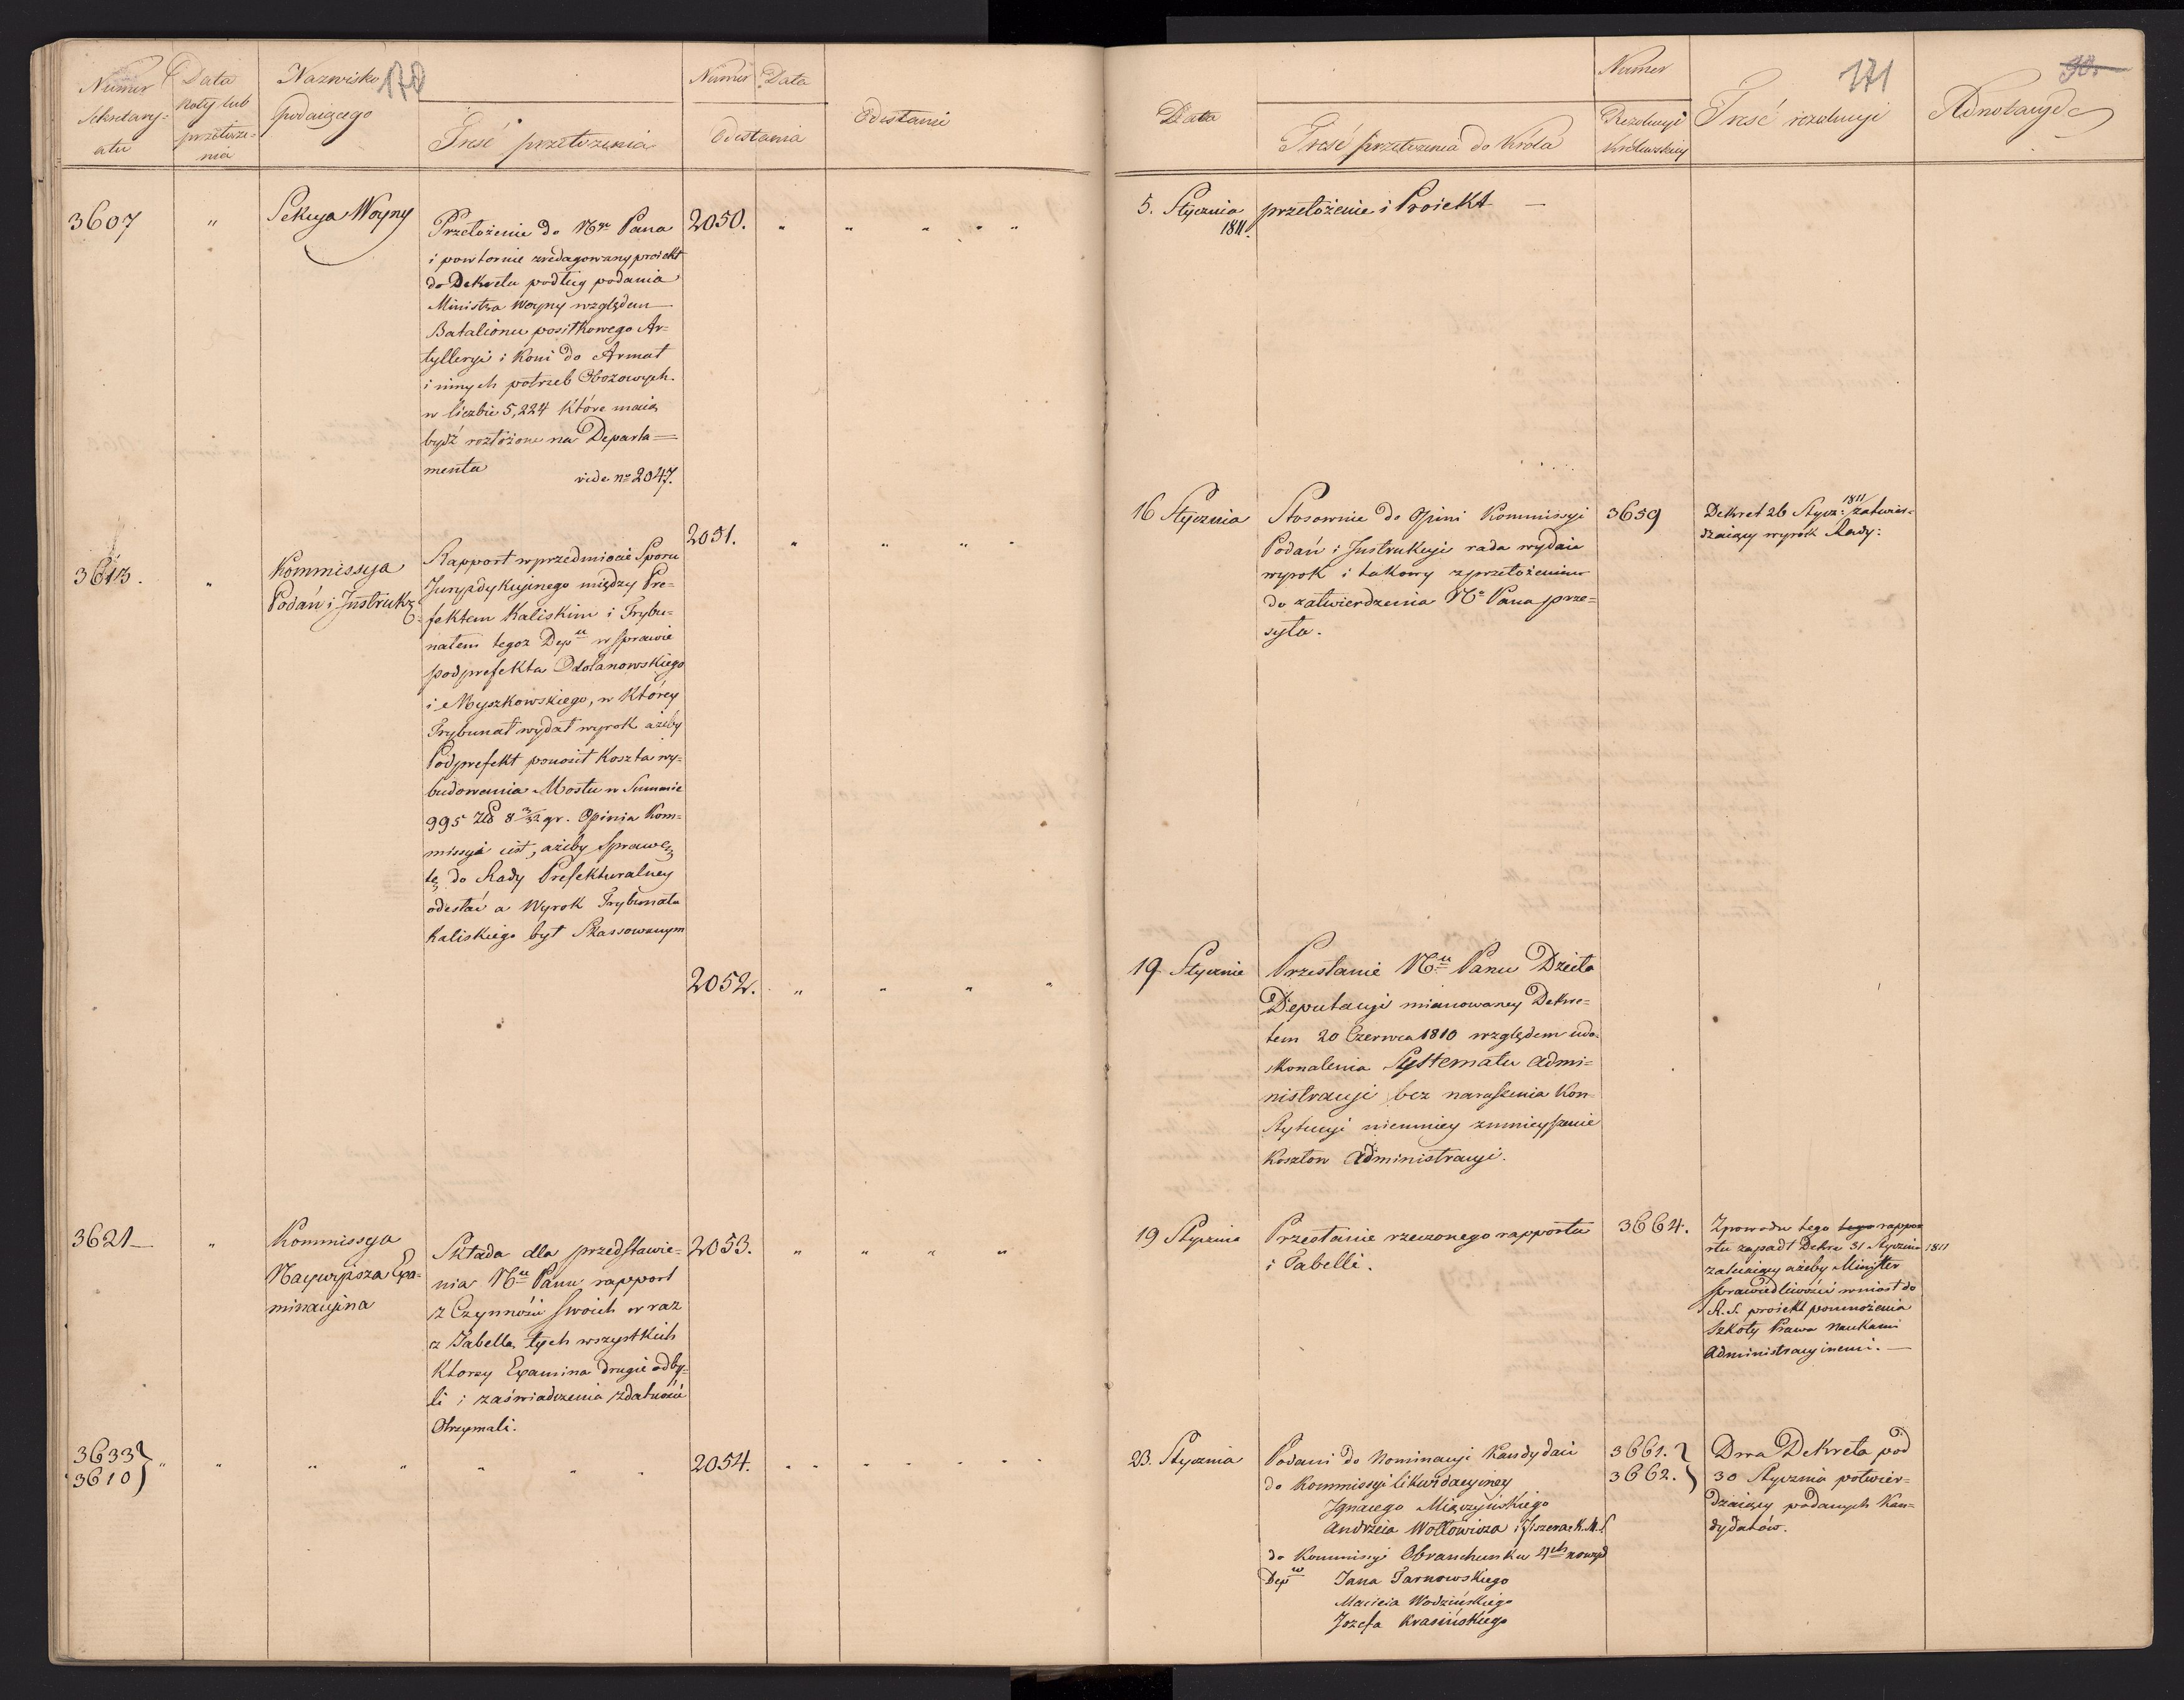 Numer
Sekretary-
atu
Data
Noty lub
przełoże-
nia
Nazwisko
Podaiącego
170
Treść przełożenia
Numer
Data
Odesłania
Odesłanie
3607
"
Sekcya Woyny
Przełożenie do Ngo Pana
i powtornie zredagowany proiekt
do Dekretu podług podania
Ministra Woyny względem
Batalionu posiłkowego Ar=
tylleryi i Koni do Armat
i innych potrzeb Obozowych
w liczbie 5,224 Które maią
bydź rozłożone na Departa=
menta
vide no 2047.
2050.
" " " " "
3613.
"
Kommissya
Podań i Instrukc:
Rapport w przedmiocie Sporu
Juryzdykcyinego między Pre=
fektem Kaliskim i Trybu=
nałem tegoż Depu w sprawie
podprefekta Odolanowskiego
i Myszkowskiego, w Którey
Trybunał wydał wyrok ażeby
Podprefekt ponosił Koszta wy=
budowania Mostu w Summie
995 Złp 8 3/32 gr. Opinia Kom=
missyi iest, ażeby Sprawę
tę do Rady Prefekturalney
odesłać a Wyrok Trybunału
Kaliskiego był Skassowanym
2051.
" " " "
2052.
" " " "
3621
"
Kommissya
Naywyższa Exa-
minacyina
Składa dla przedstawie=
nia Nu Panu rapport
z Czynności swoich wraz
z Tabellą tych wszystkich
Ktorzy Examina drugie odby-
li i zaświadczenia zdatności
Otrzymali.
2053.
" " " "
3633
3610
" " " " " " "
2054.
" " " " " " "
Data
Treść przełożenia do Króla
Numer
Rezolucyi
Królewskiey
171
Treść rezolucyi
90.
Adnotacye
5. Stycznia
1811.
przełożenie i Proiekt —
16 Stycznia
Stosownie do Opini Kommissyi
Podań i Instrukcyi rada wydaie
wyrok i takowy z przełożeniem
do zatwierdzenia No Pana prze=
syła.
3659
Dekret 26 Stycz: 1811 zatwier-
dzaiący wyrok Rady:
19 Stycznia
Przesłanie Nu Panu Dzieła
Deputacyi mianowaney Dekre=
tem 20 Czerwca 1810 względem udo-
skonalenia Systematu admi=
nistracyi bez naruszenia Kon-
stytucyi niemniey zmnieyszenie
Kosztow administracyi.
19 Stycznia
Przesłanie rzeczonego rapportu
i Tabelli.
3664.
Zpowodu tego tego rappo
rtu zapadł Dekre 31 Stycznia 1811
zalecaiący ażeby Minister
sprawiedliwości wniosł do
R. S. proiekt pomnożenia
Szkoły Prawa Naukami
Administracyinemi. —
23. Stycznia
Podani do Nominacyi Kandydaci
do Kommissyi likwidacyiney
Ignacego Miączyńskiego
Andrzeia Wołłowicza i Fiszera R. M. S
do Kommissyi Obrachunku 4ech nowych
Depw Jana Tarnowskiego
Macieia Wodzińskiego
Jozefa Krasińskiego
3661.
3662.
Dwa Dekreta pod
30 Stycznia potwier=
dzaiący podanych Kan=
dydatów.